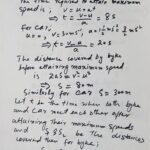 time required to attain maximum
speed is, v = u + at
⇒ t = (v-u)/a = 8s
for car,
u = 0, v = 30 m/s,
⇒ t = (v-u)/a = 20s
The distance covered by byke
before attaining maximum speed
is 2as = v² - u²
⇒ s = 80m
Similarly for car s = 300m
Let t be the time when both byke
and car meet each other after
attaining their maximum speeds
and be the distances
covered then for byke;